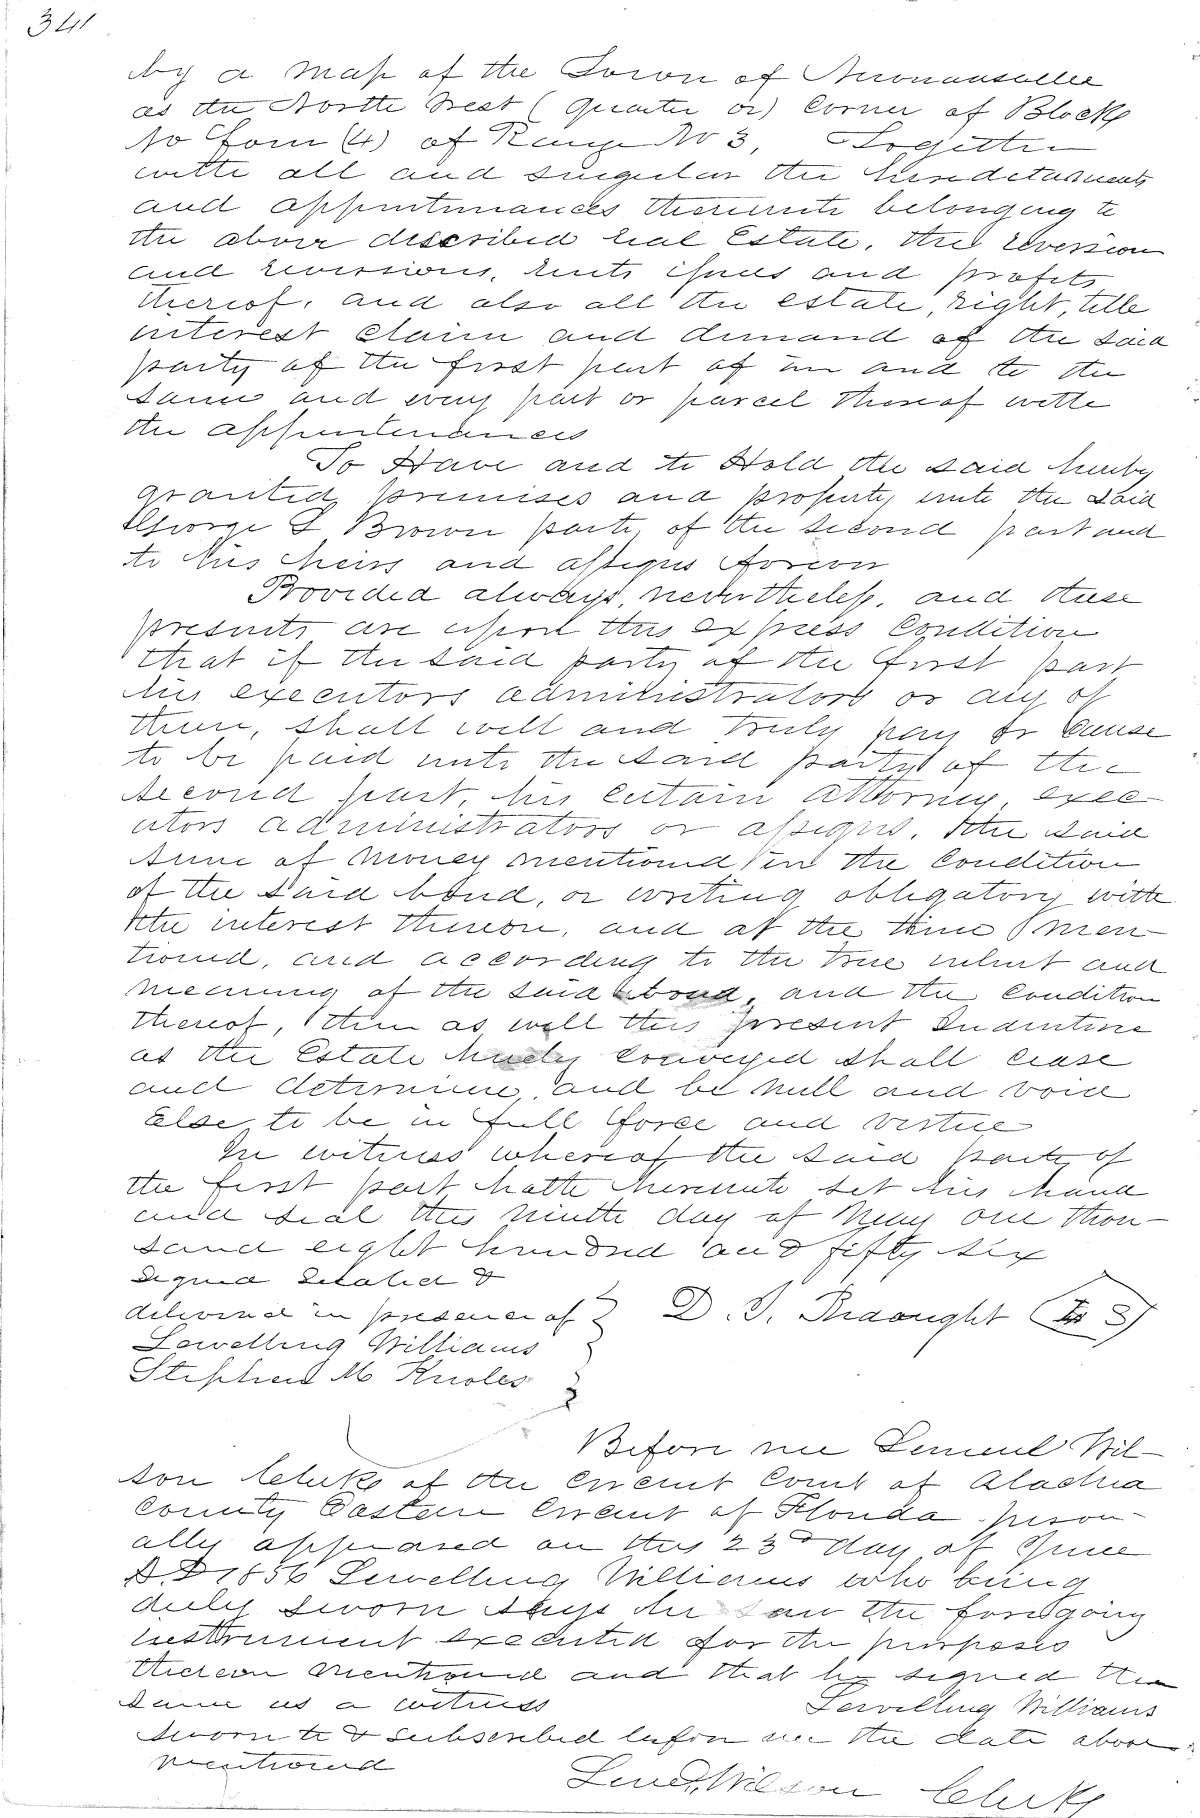 341
by a map of the Town of Newnansville
as the North West (quarter or) Corner of Block
No Four (4) of Range No 3, Together
with all and singular the hereditaments
and appurtenances thereunto belonging to
the above described real Estate, the reversion
and reversions, rents issues and profits
thereof, and also all the estate, right, title
interest claim and demand of the said
party of the first part of in and to the
same and every part or parcel thereof with
the appurtenances
To Have and to Hold the said hereby
granted premises and property unto the said
George L Brown party of the second part and
to his heirs and assigns forever
Provided always, nevertheless, and these
presents are upon this express Condition
that if the said party of the first part
his executors administrators or any of
them, shall well and truly pay or cause
to be paid unto the said party of the
second part, his certain attorney, exec-
utors administrators or assigns, the said
sum of money mentioned in the Condition
of the said bond, or writing obligatory with
the interest thereon, and at the time men-
tioned, and according to the true intent and
meaning of the said bond, and the Condition
thereof, then as well this present Indenture
as the Estate hereby conveyed shall cease
and determine, and be null and void
Else to be in full force and virtue
In witness whereof the said party of
the first part hath hereunto set his hand
and seal this ninth day of May one thou-
sand eight hundred and fifty six
Signed Sealed &
delivered in presence of
D. I.
Lewelling Williams
Stephen M Knoles
Before me Lemuel Wil-
son Clerk of the Circuit Court of Alachua
County Eastern Circuit of Florida person-
ally appeared on this 23d day of June
A.D 1856 Lewelling Williams who being
duly sworn says he saw the foregoing
instrument executed for the purposes
thereon mentioned and that he signed the
same as a witness
Lewelling Williams
Sworn to & subscribed before me the date above
mentioned
Leml Wilson Clerk